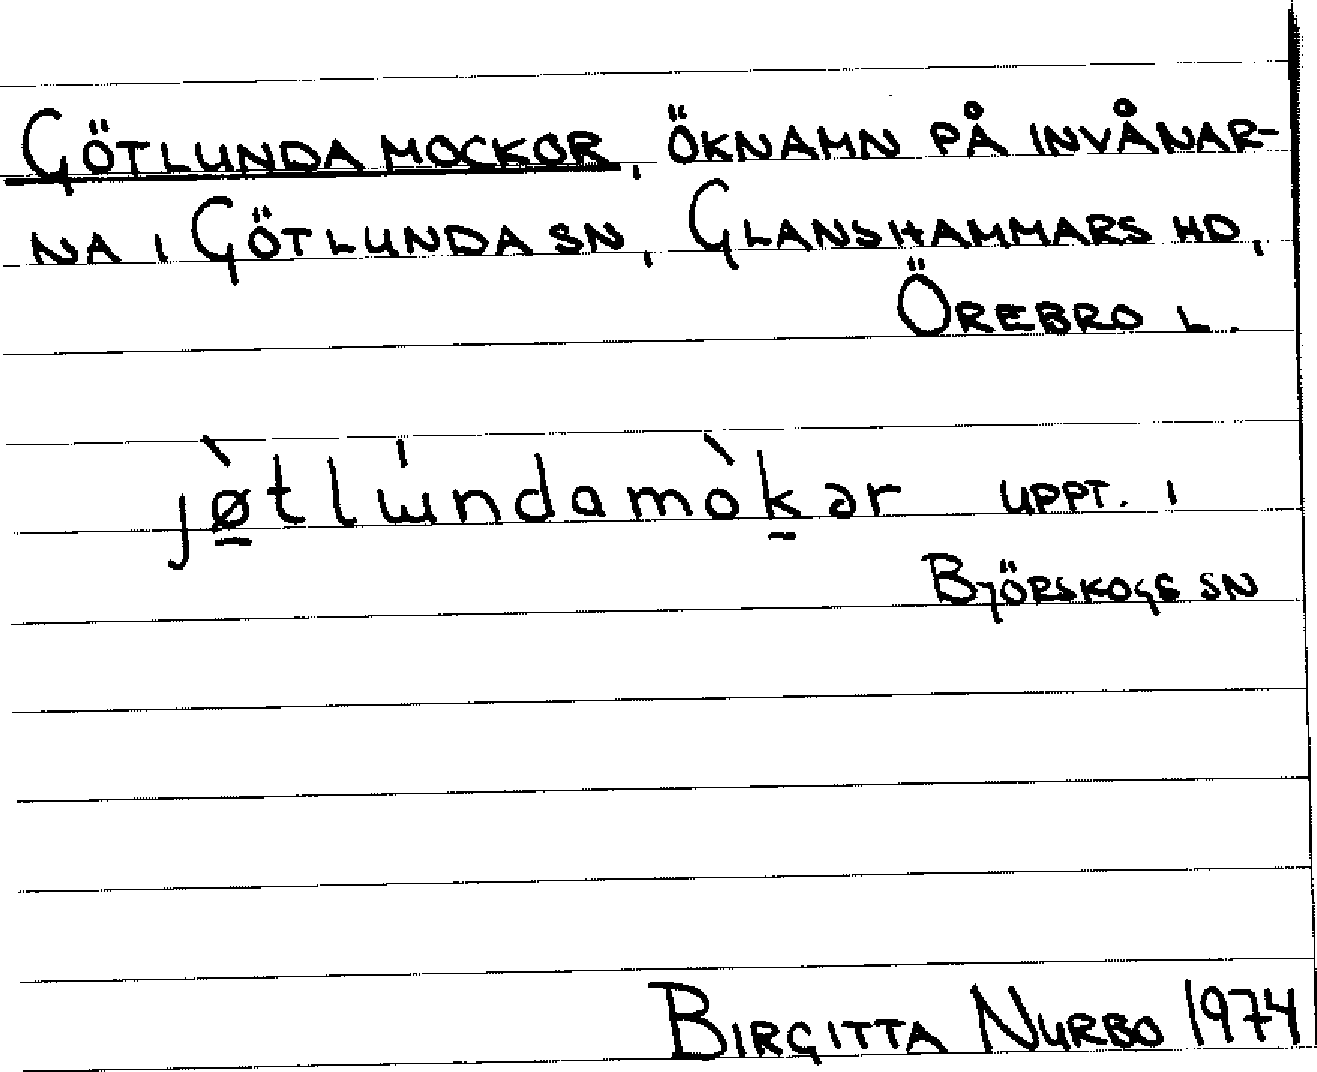 GÖTLUNDA MOCKOR, ÖKNAMN PÅ INVÅNAR-
NA I GÖTLUNDA SN, GLANSHAMMARS HD,
ÖREBRO L.
jø̲̀tlɯ́ndamòk̲ər UPPT. I
BJÖRSKOGS SN
BIRGITTA NURBO 1974